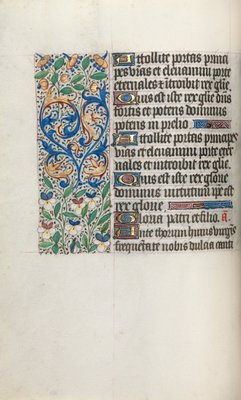 Attollite portas princi
pes vras et eleuamini porte
eternales et introibit rex glie.
Quis est iste rex glie dns
fortis et potens dominus
potens in prelio
Attollite portas principes
vras et eleuamini porte eter
nales et introibit rex glie.
Quis est iste rex glorie
dominus uirtutum ipse est
rex glorie.
Gloria patri et filio. a.
Ante thorum huius uirgis
frequentate nobis dulcia canti